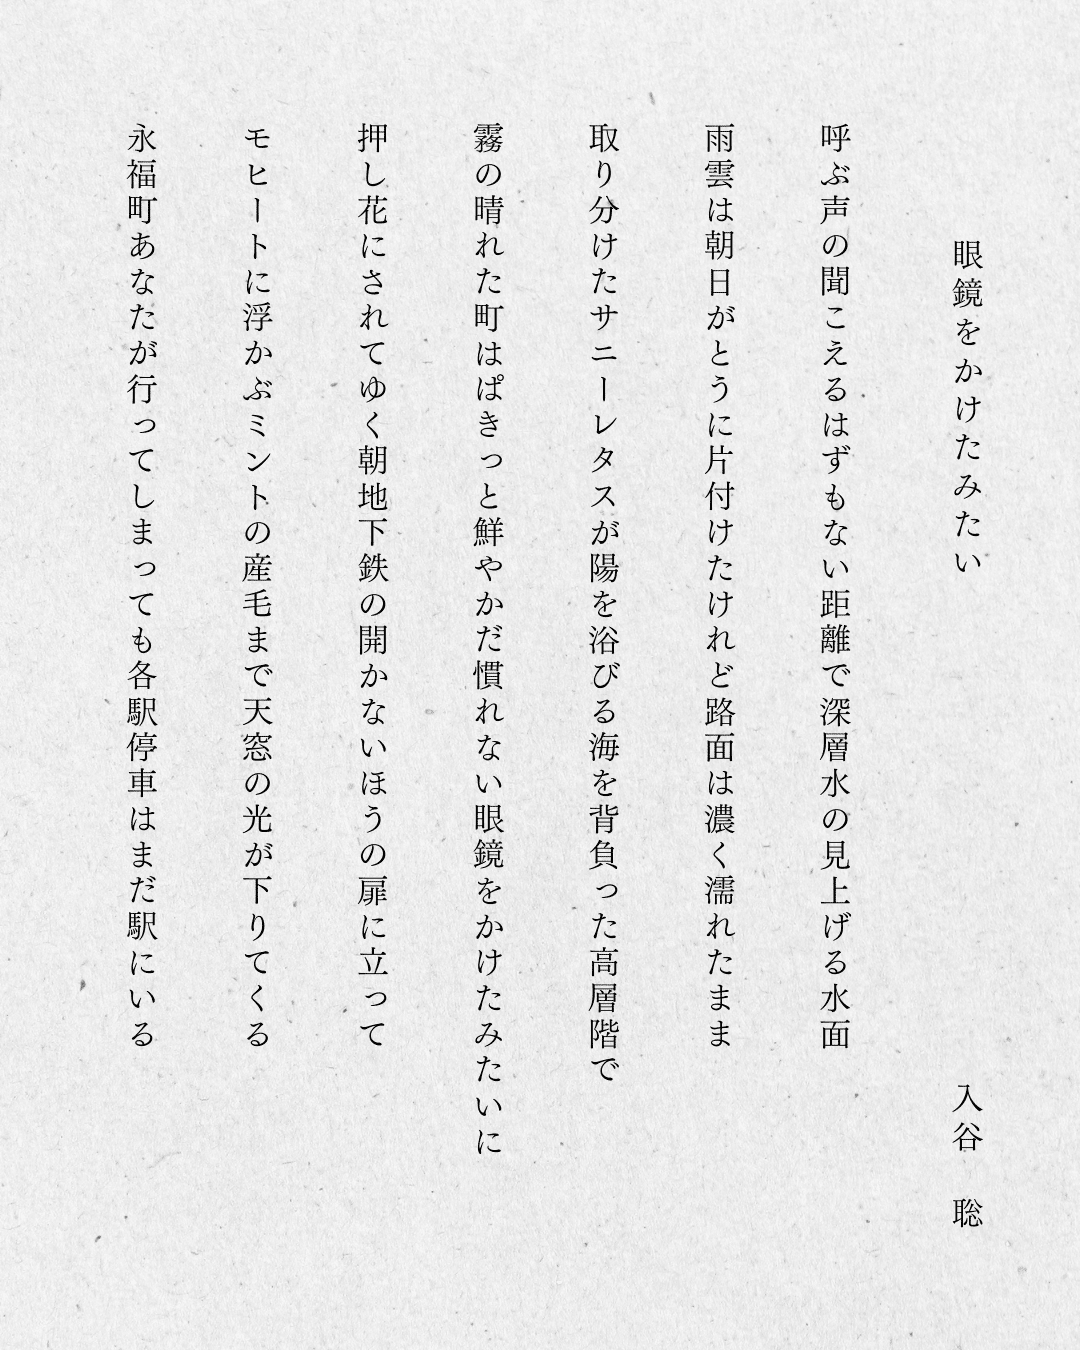 眼鏡をかけたみたい
入谷 聡
呼ぶ声の聞こえるはずもない距離で深層水の見上げる水面
雨雲は朝日がとうに片付けたけれど路面は濃く濡れたまま
取り分けたサニーレタスが陽を浴びる海を背負った高層階で
霧の晴れた町はぱきっと鮮やかだ慣れない眼鏡をかけたみたいに
押し花にされてゆく朝地下鉄の開かないほうの扉に立って
モヒートに浮かぶミントの産毛まで天窓の光が下りてくる
永福町あなたが行ってしまっても各駅停車はまだ駅にいる